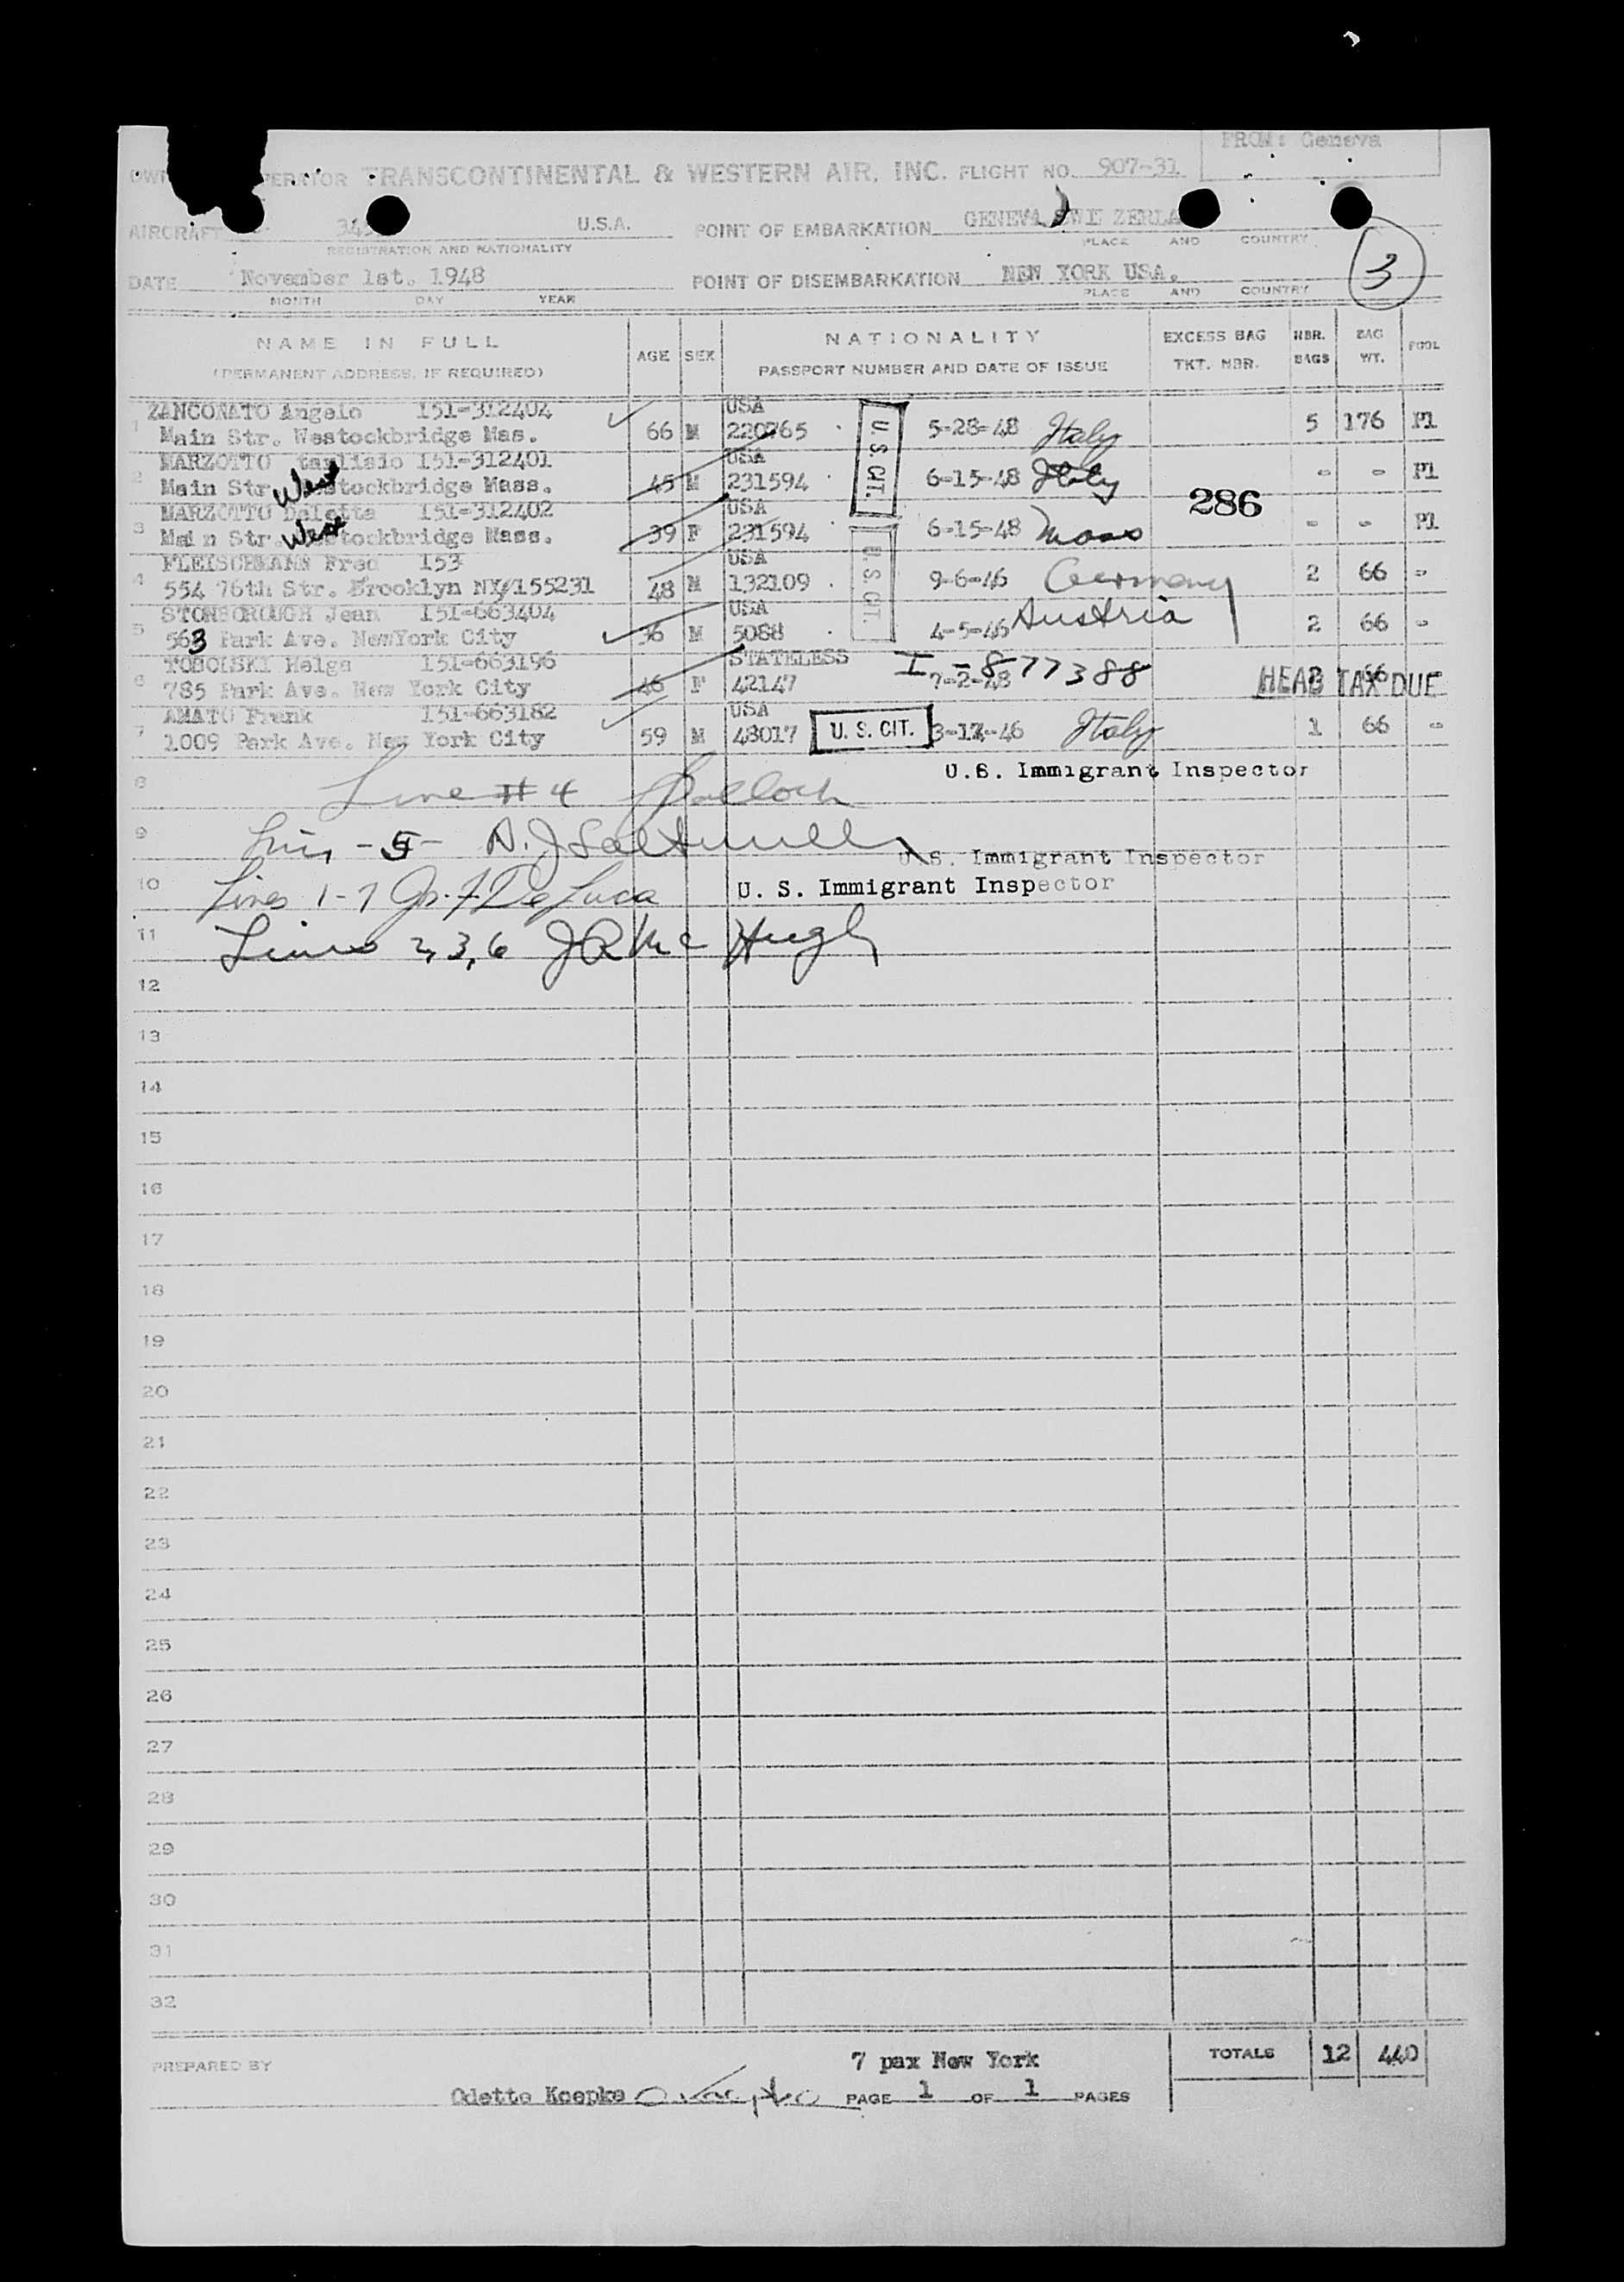 FROM: Geneva
OPERATOR TRANSCONTINENTAL & WESTERN AIR, INC. FLIGHT NO. 907-31
AIRCRAFT U.S.A. POINT OF EMBARKATION GENEVA
REGISTRATION AND NATIONALITY PLACE AND COUNTRY
3
DATE November 1st. 1948 POINT OF DISEMBARKATION NEW YORK USA.
MONTH DAY YEAR PLACE AND COUNTRY
NAME IN FULL
(PERMANENT ADDRESS, IF REQUIRED)
AGE SEX
NATIONALITY
PASSPORT NUMBER AND DATE OF ISSUE
EXCESS BAG
TKT. NBR.
NBR.
BAGS
BAG
WT.
POOL
ZANCONATO Angelo 151-312404 USA
1 Main Str. Westockbridge Mas. 66 M 220765 U.S. CIT. 5-28-48 Italy 5 176 Pl
MARZOTTO 151-312401 USA
2 Main Str. West Westockbridge Mass. 45 M 231594 6-15-48 Italy - - Pl
286
MARZOTTO 151-312402 USA
3 Main Str. West Westockbridge Mass. 39 F 231594 6-15-48 Mass - - Pl
FLEISCHMANN Fred 153 USA
4 554 76th Str. Brooklyn NY/155231 48 M 132109 U.S. CIT. 9-6-46 Germany 2 66 -
STONBOROUGH Jean 151-663404 USA
5 563 Park Ave. NewYork City 36 M 5088 4-5-46 Austria 2 66 -
TOBOLSKI Helga 151-663196 STATELESS I-877388
6 785 Park Ave. New York City 46 F 42147 7-2-48 2 66 HEAD TAX DUE
AMATO Frank 151-663182 USA
7 1009 Park Ave. New York City 59 M 48017 U. S. CIT. 3-12-46 Italy 1 66 -
U.S. Immigrant Inspector
8 Line # 4
9 Line -5-
U.S. Immigrant Inspector
10 Lines 1-7 De Luca U. S. Immigrant Inspector
11 Lines 2,3,6 J R Mc Hugh
12
13
14
15
16
17
18
19
20
21
22
23
24
25
26
27
28
29
30
31
32
PREPARED BY 7 pax New York TOTALS 12 440
Odette Koepke PAGE 1 OF 1 PAGES